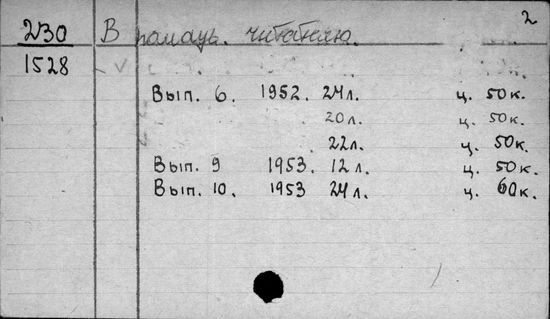 2
230 В помощь читателю.
1528
Вып. 6. 1952. 24л. ц. 50к.
20л. ц. 50к.
22л. ц. 50к.
Вып. 9 1953. 12л. ц. 50к.
Вып. 10. 1953 24л. ц. 60к.